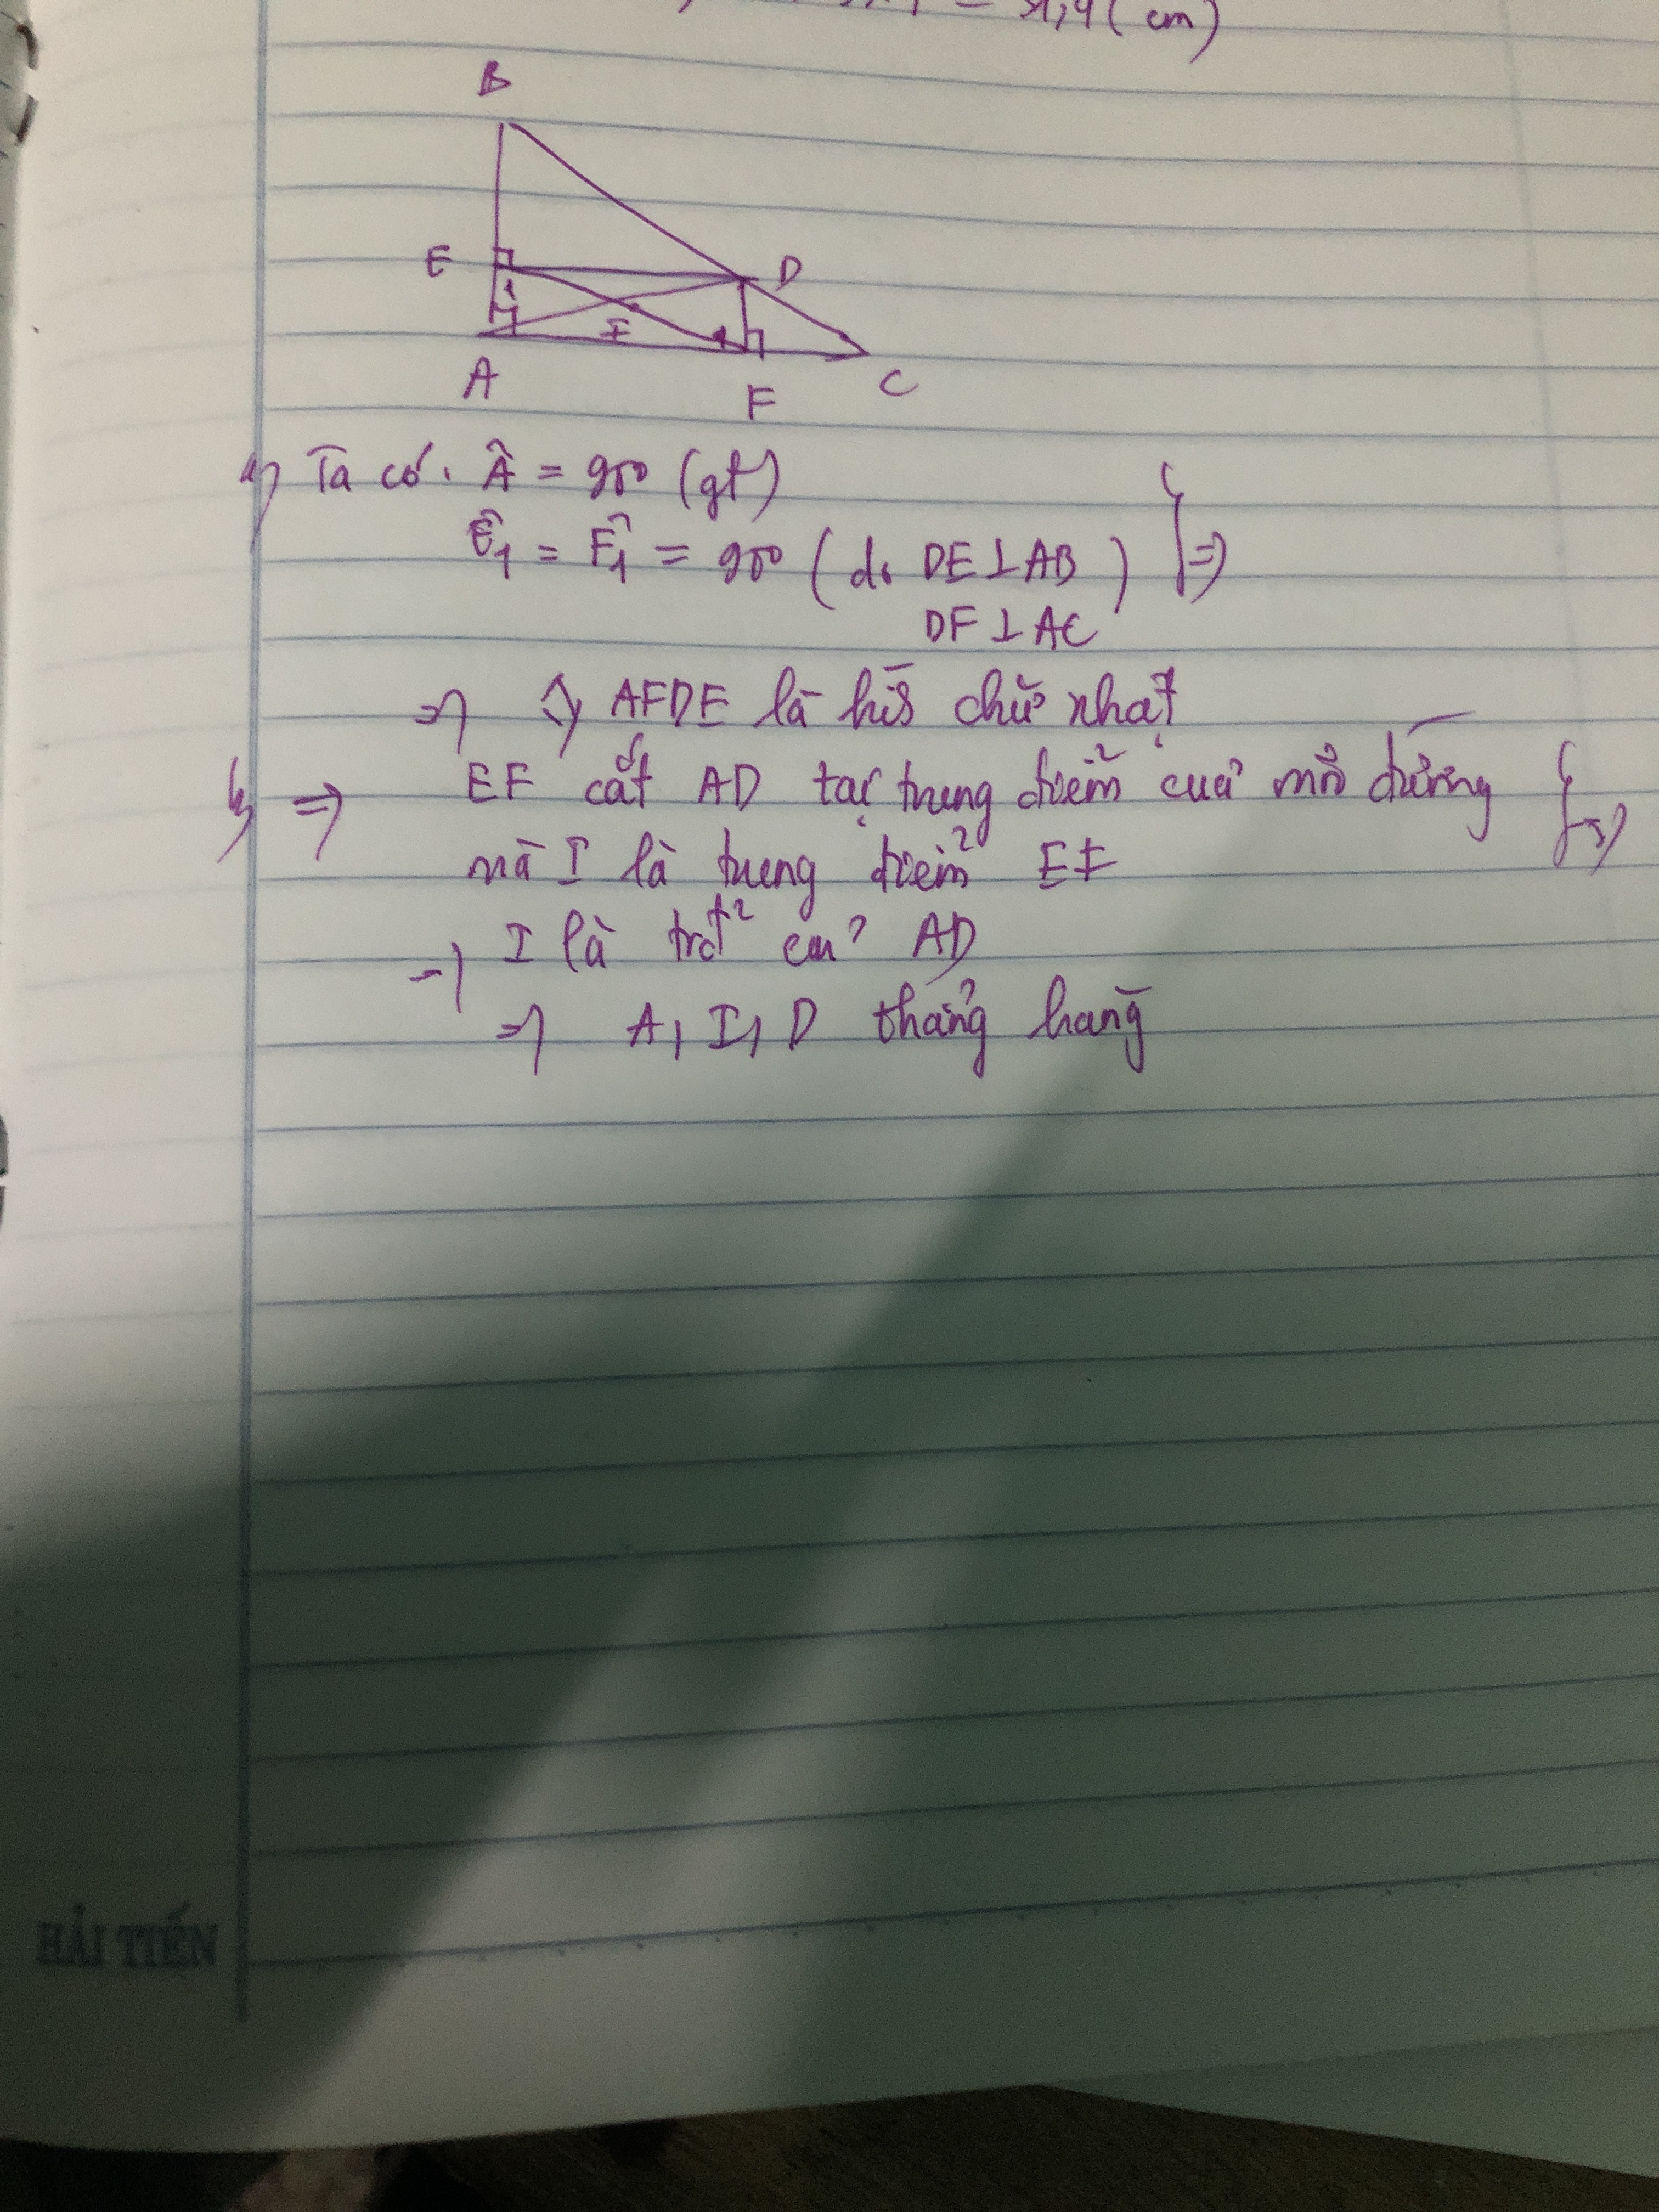 = 31,4 (cm)
B
E
D
1
I
1
A
F
C
a) Ta có: Â = 90° (gt)
Ê1 = F̂1 = 90° (do DE⊥AB) } =>
DF⊥AC
=> AFDE là hình chữ nhật
b) => EF cắt AD tại trung điểm của mỗi đường } =>
mà I là trung điểm EF
=> I là trđ của AD
=> A, I, D thẳng hàng
HẢI TIẾN